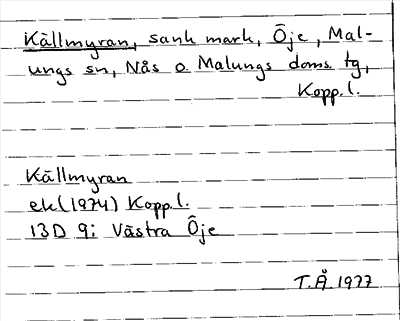 Källmyran, sank mark, Öje, Mal-
ungs sn, Nås o Malungs doms. tg,
Kopp. l.
Källmyran
ek (1974) Kopp. l.
13D 9i Västra Öje
T.Å 1977